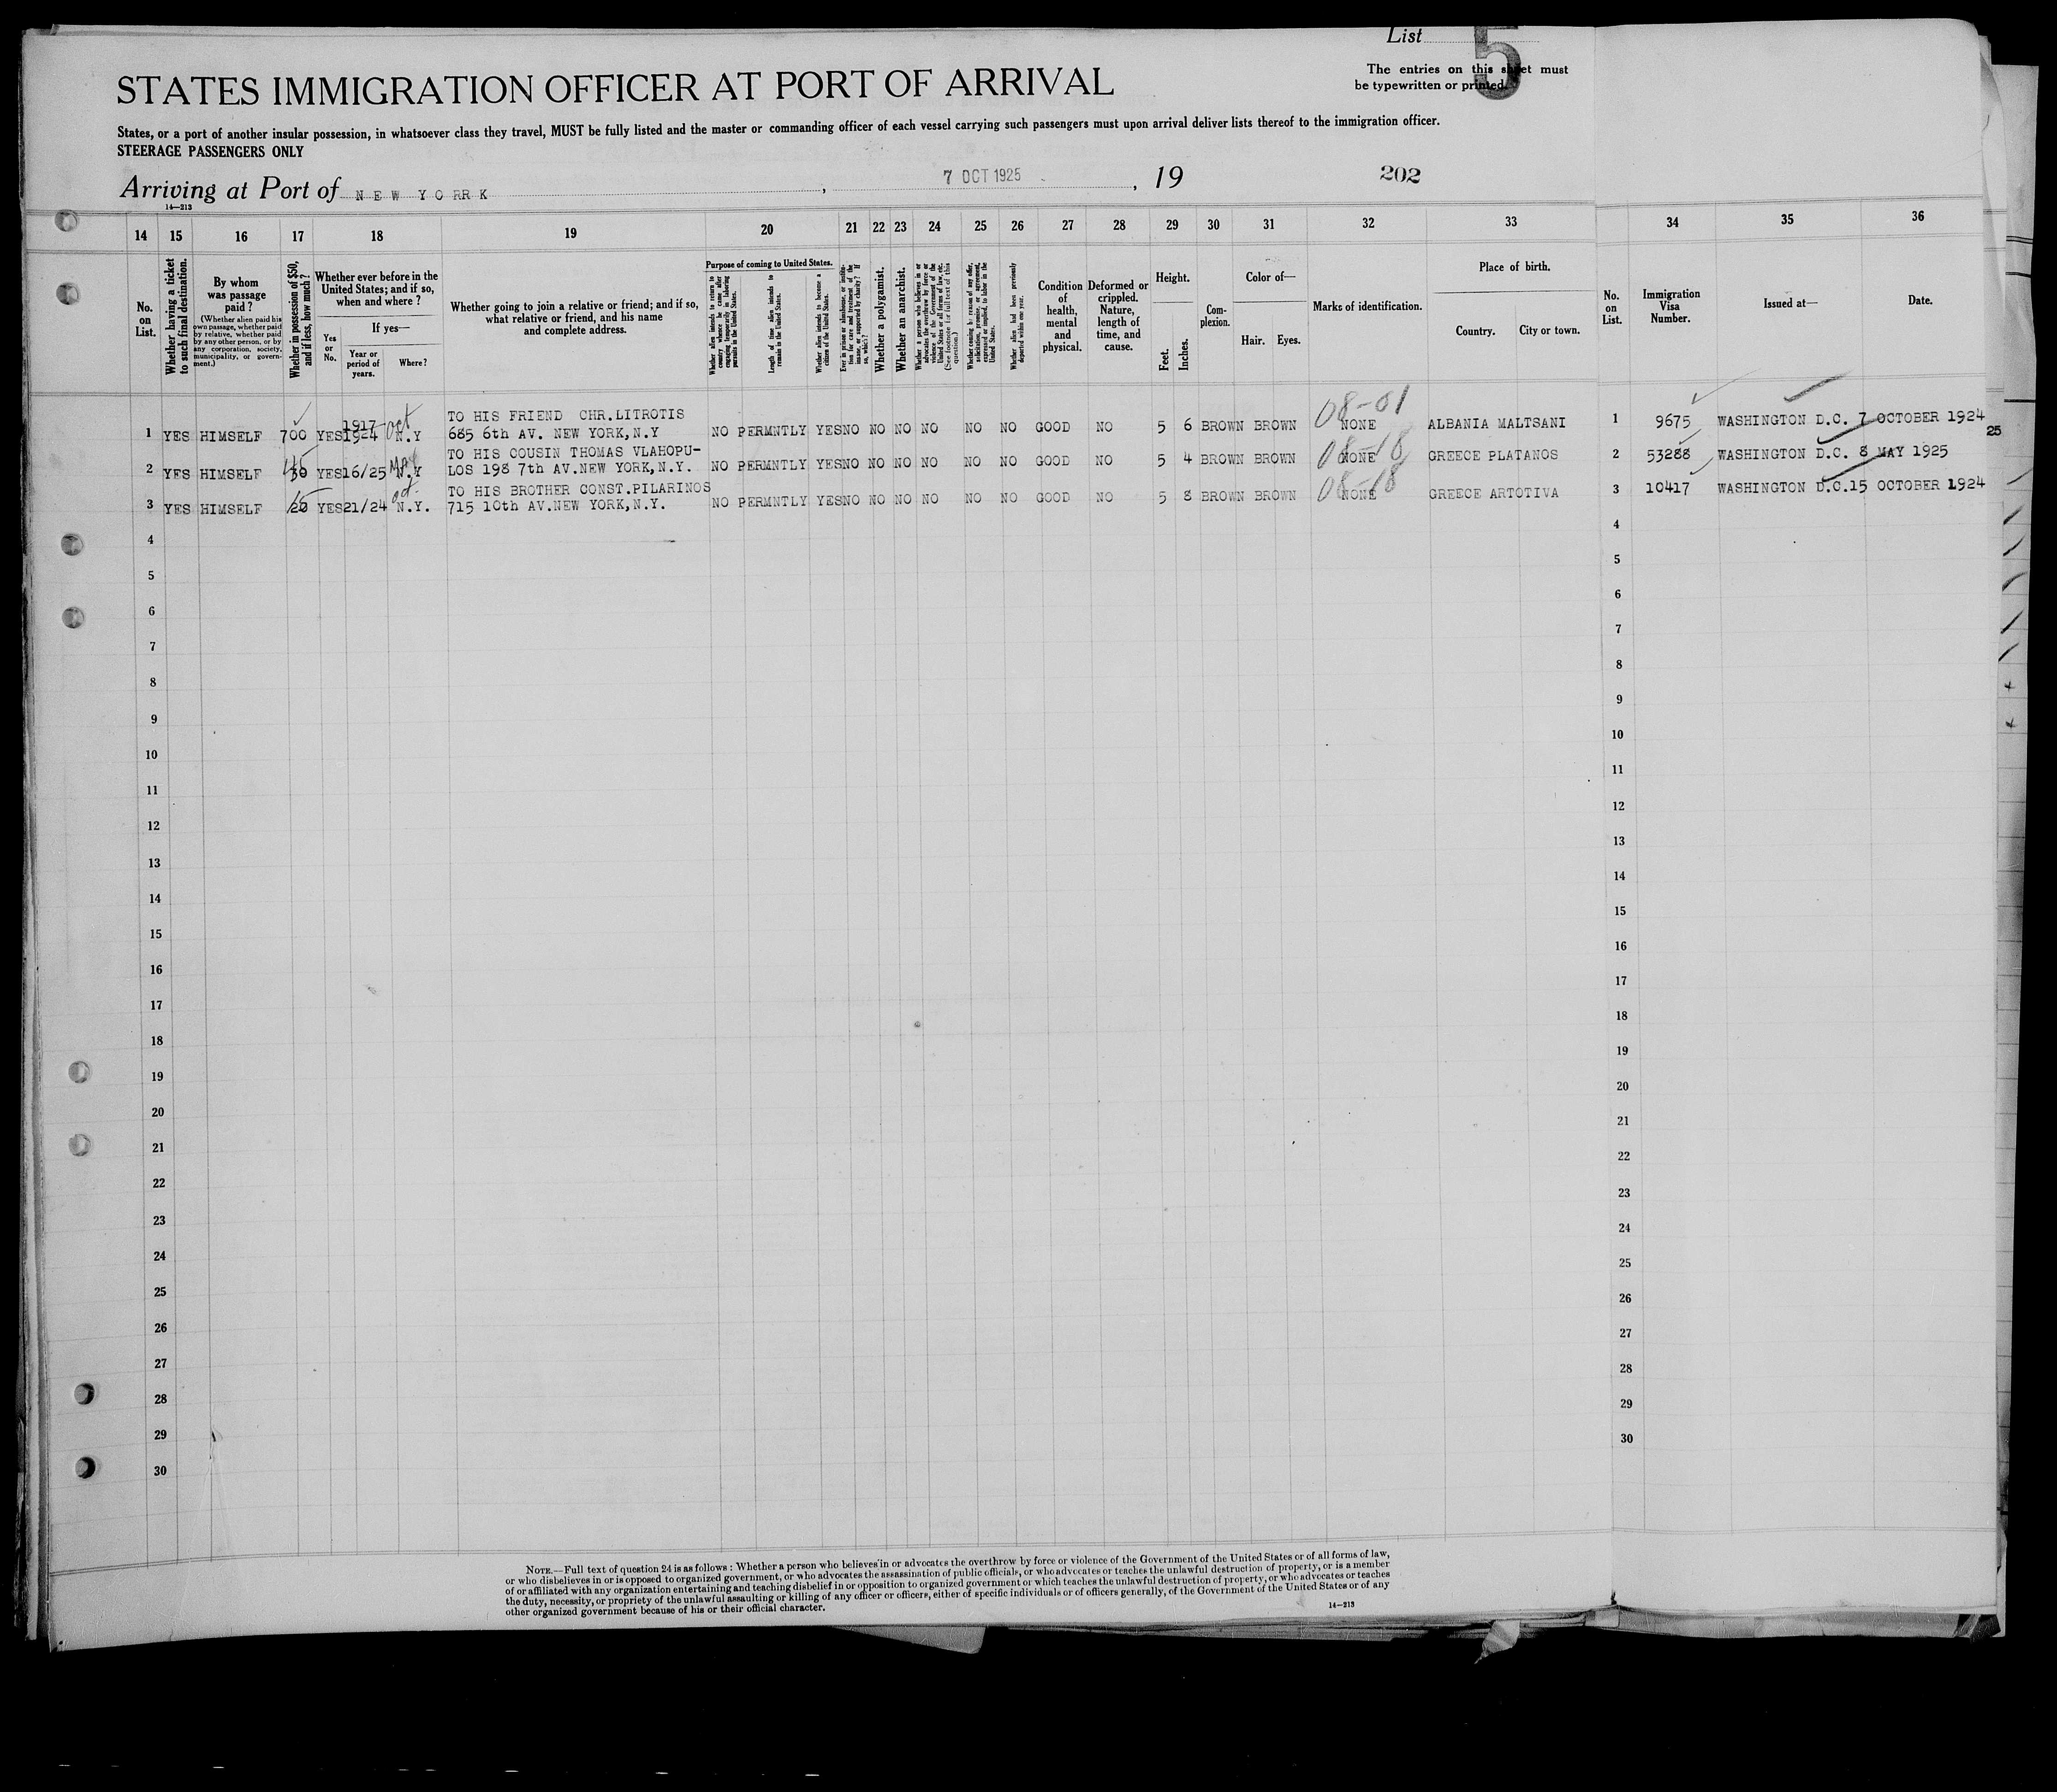 List 5
The entries on this sheet must
be typewritten or printed.
STATES IMMIGRATION OFFICER AT PORT OF ARRIVAL
States, or a port of another insular possession, in whatsoever class they travel, MUST be fully listed and the master or commanding officer of each vessel carrying such passengers must upon arrival deliver lists thereof to the immigration officer.
STEERAGE PASSENGERS ONLY
Arriving at Port of NEW YORRK, 7 OCT 1925, 19 202
14—213
14 15 16 17 18 19 20 21 22 23 24 25 26 27 28 29 30 31 32 33 34 35 36
No. on List.
Whether having a ticket to such final destination.
By whom was passage paid?
(Whether alien paid his own passage, whether paid by relative, whether paid by any other person, or by any corporation, society, municipality, or government.)
Whether in possession of $50, and if less, how much?
Whether ever before in the United States; and if so, when and where?
Yes or No.
If yes—
Year or period of years.
Where?
Whether going to join a relative or friend; and if so, what relative or friend, and his name and complete address.
Purpose of coming to United States.
Whether alien intends to return to country whence he came after engaging temporarily in laboring pursuits in the United States.
Length of time alien intends to remain in the United States.
Whether alien intends to become a citizen of the United States.
Ever in prison or almshouse, or institution for care and treatment of the insane, or supported by charity? If so, which?
Whether a polygamist.
Whether an anarchist.
Whether a person who believes in or advocates the overthrow by force or violence of the Government of the United States or of all forms of law, etc. (See footnote for full text of this question.)
Whether coming by reason of any offer, solicitation, promise, or agreement, expressed or implied, to labor in the United States.
Whether alien had been previously deported within one year.
Condition of health, mental and physical.
Deformed or crippled. Nature, length of time, and cause.
Height.
Feet. Inches.
Complexion.
Color of—
Hair. Eyes.
Marks of identification.
Place of birth.
Country. City or town.
No. on List.
Immigration Visa Number.
Issued at—
Date.
1 YES HIMSELF 700 YES 1917 1924 Oct N.Y TO HIS FRIEND CHR.LITROTIS
685 6th AV. NEW YORK,N.Y NO PERMNTLY YES NO NO NO NO NO NO GOOD NO 5 6 BROWN BROWN 08-01 NONE ALBANIA MALTSANI 1 9675 WASHINGTON D.C. 7 OCTOBER 1924 25
2 YES HIMSELF 45 30 YES 16/25 May N.Y TO HIS COUSIN THOMAS VLAHOPU-
LOS 198 7th AV.NEW YORK,N.Y. NO PERMNTLY YES NO NO NO NO NO NO GOOD NO 5 4 BROWN BROWN 08-18 NONE GREECE PLATANOS 2 53288 WASHINGTON D.C. 8 MAY 1925
3 YES HIMSELF 20 YES 21/24 oct N.Y. TO HIS BROTHER CONST.PILARINOS
715 10th AV.NEW YORK,N.Y. NO PERMNTLY YES NO NO NO NO NO NO GOOD NO 5 8 BROWN BROWN 08-18 NONE GREECE ARTOTIVA 3 10417 WASHINGTON D.C.15 OCTOBER 1924
4 4
5 5
6 6
7 7
8 8
9 9
10 10
11 11
12 12
13 13
14 14
15 15
16 16
17 17
18 18
19 19
20 20
21 21
22 22
23 23
24 24
25 25
26 26
27 27
28 28
29 29
30 30
NOTE.—Full text of question 24 is as follows: Whether a person who believes in or advocates the overthrow by force or violence of the Government of the United States or of all forms of law,
or who disbelieves in or is opposed to organized government, or who advocates the assassination of public officials, or who advocates or teaches the unlawful destruction of property, or is a member
of or affiliated with any organization entertaining and teaching disbelief in or opposition to organized government or which teaches the unlawful destruction of property, or who advocates or teaches
the duty, necessity, or propriety of the unlawful assaulting or killing of any officer or officers, either of specific individuals or of officers generally, of the Government of the United States or of any
other organized government because of his or their official character.
14—213